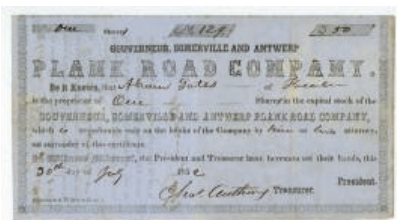 One Share, No 129 $50
GOUVERNEUR, SOMERVILLE AND ANTWERP
PLANK ROAD COMPANY.
Be it Known, that Gates of
is the proprietor of One Share in the capital stock of the
GOUVERNEUR, SOMERVILLE AND ANTWERP PLANK ROAD COMPANY,
which is transferable only on the books of the Company by him or his attorney,
on surrender of this certificate.
the President and Treasurer have hereunto set their hands, this
30th day of July
President.
Anthony Treasurer.